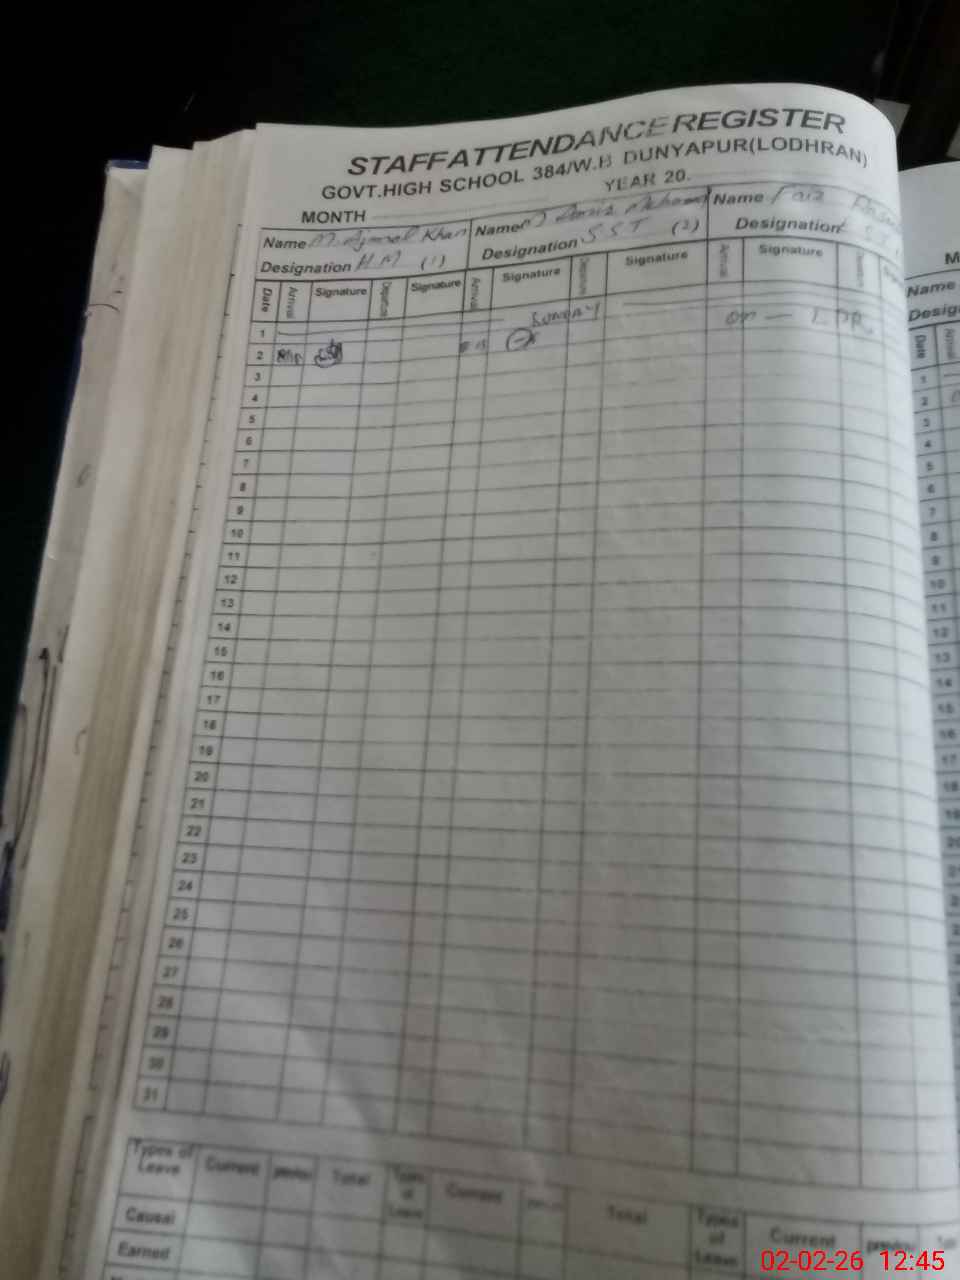 STAFF ATTENDANCE REGISTER
GOVT.HIGH SCHOOL 384/W.B DUNYAPUR(LODHRAN)
MONTH YEAR 20.
Name M. Ajmal Khan Name M Name Faiz
Designation H M (1) Designation S S T (2) Designation
Date Arrival Signature Departure Signature Arrival Signature Departure Signature Arrival Signature Departure
1 SUNDAY
2 8 15 on — L PR.
3
4
5
6
7
8
9
10
11
12
13
14
15
16
17
18
19
20
21
22
23
24
25
26
27
28
29
30
31
Types of Leave Current previu Total Types of Leave Current Total Types of Leave Current previu
Causal
Earned
M
Name
Desig
Date Arrival
1
2
3
4
5
6
7
8
9
10
11
12
13
14
15
16
17
18
19
20
02-02-26 12:45